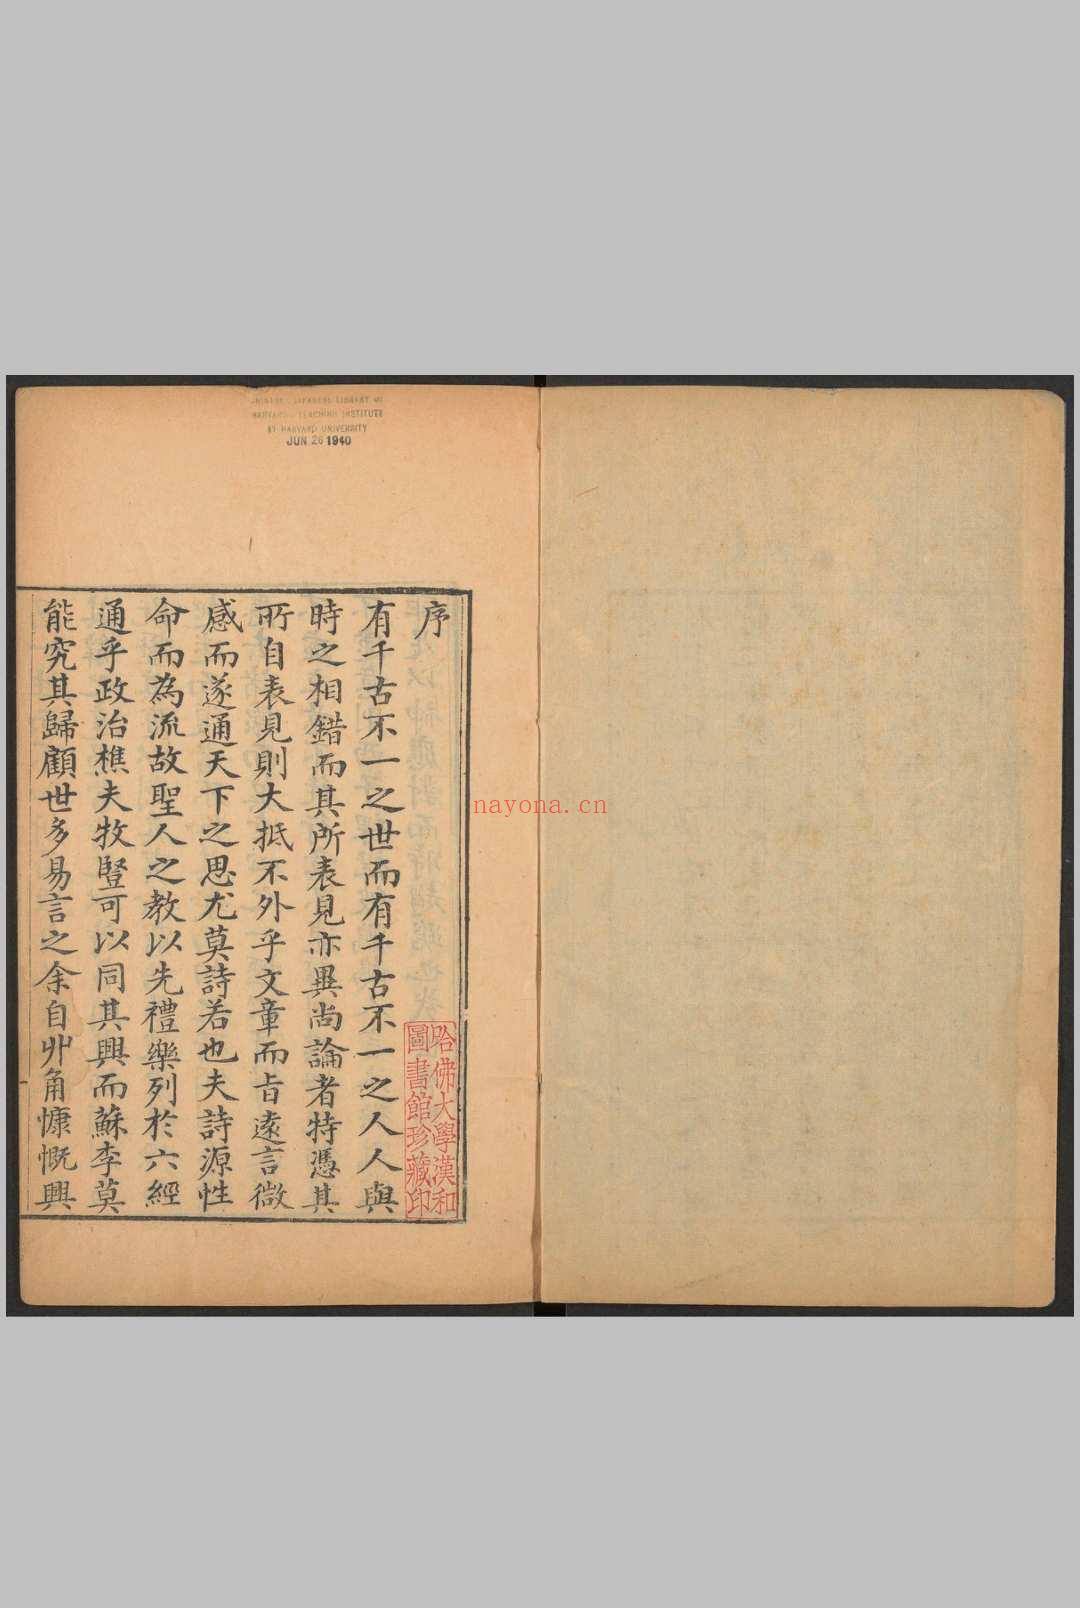 CHINESE - JAPANESE LIBRARY OF
HARVARD - YENCHING INSTITUTE
AT HARVARD UNIVERSITY
JUN 26 1940
序
有千古不一之世而有千古不一之人人與
時之相錯而其所表見亦異尚論者特憑其
所自表見則大抵不外乎文章而旨遠言微
感而遂通天下之思尤莫詩若也夫詩源性
命而為流故聖人之教以先禮樂列於六經
通乎政治樵夫牧豎可以同其興而蘇李莫
能究其歸顧世多易言之余自丱角慷慨興
哈佛大學漢和
圖書館珍藏印
nayona.cn